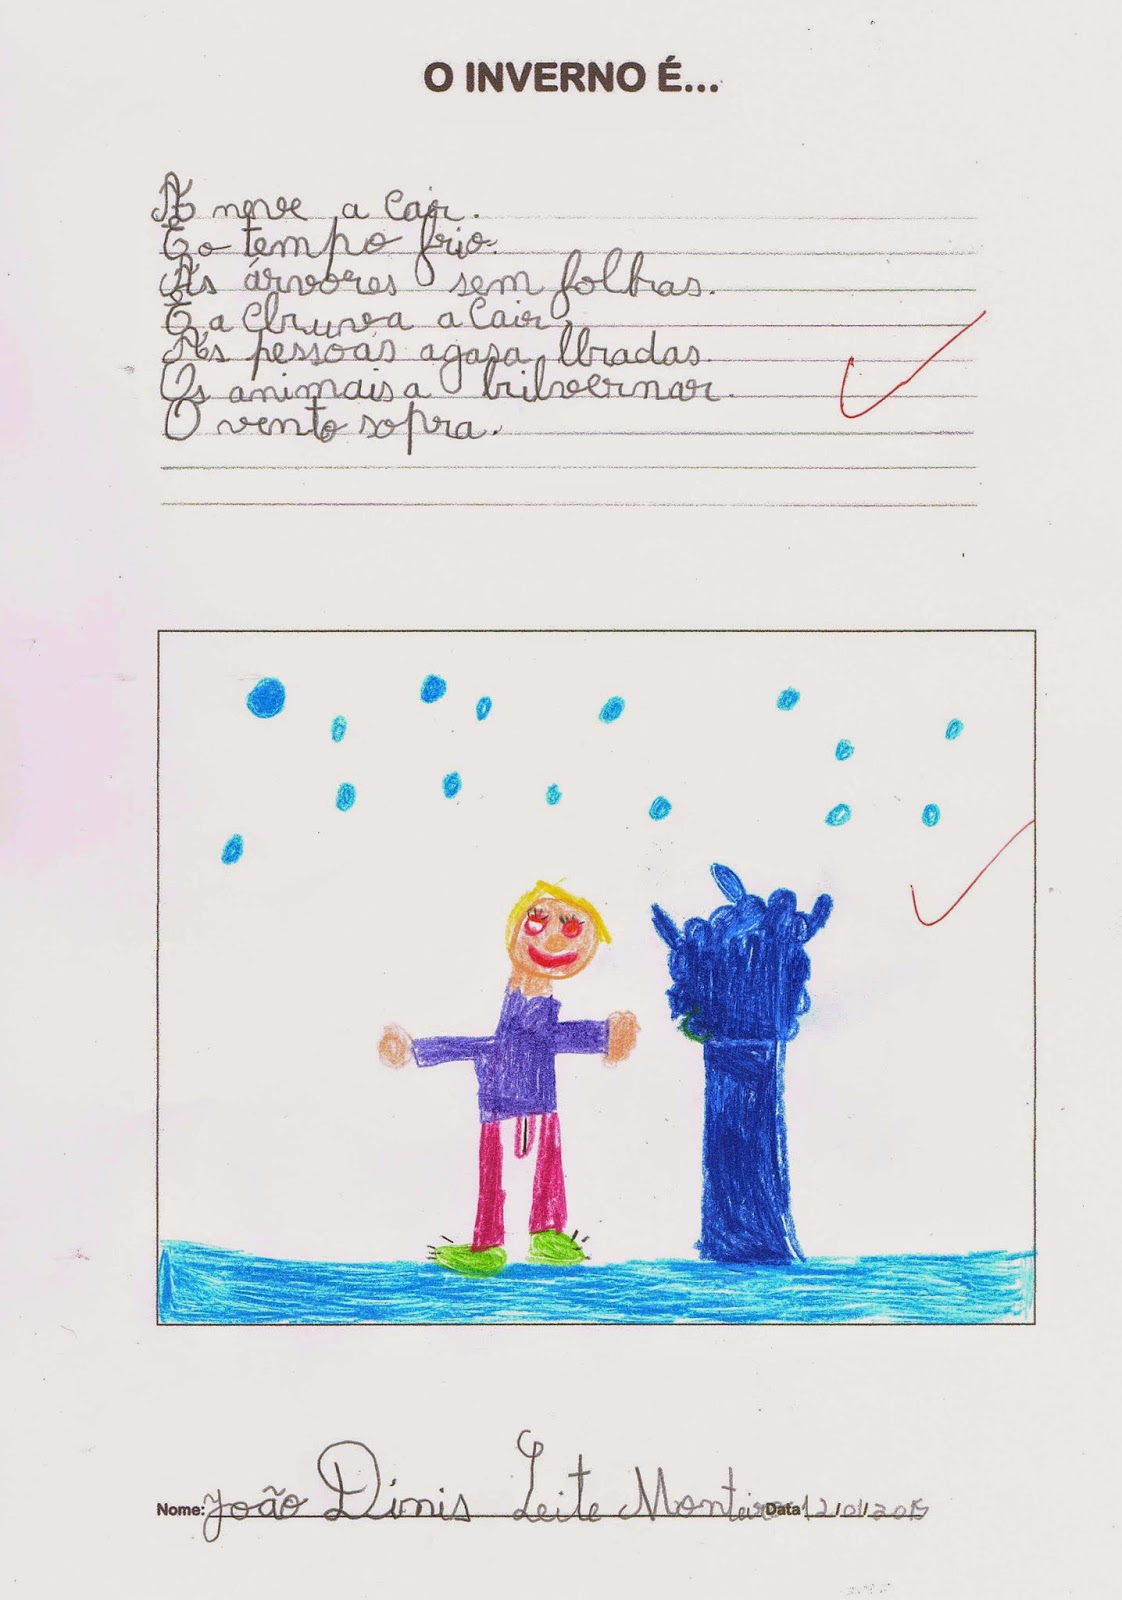 O INVERNO É...
A neve a cair.
E o tempo frio.
As árvores sem folhas.
E a chuva a cair.
As pessoas agasalhadas.
Os animais a hibernar.
O vento sopra.
Nome: João Dinis Leite Monteiro Data 12/01/2015